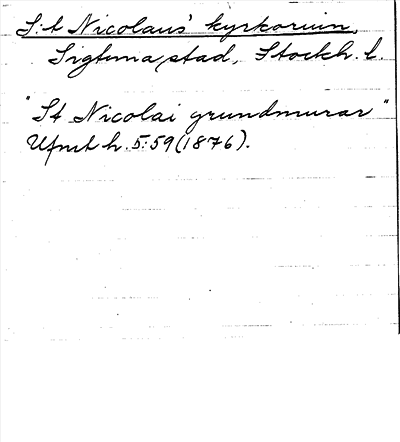 S:t Nicolaus' kyrkoruin,
Sigtuna stad, Stockh. l.
"St Nicolai grundmurar"
Ufmt h. 5:59 (1876).